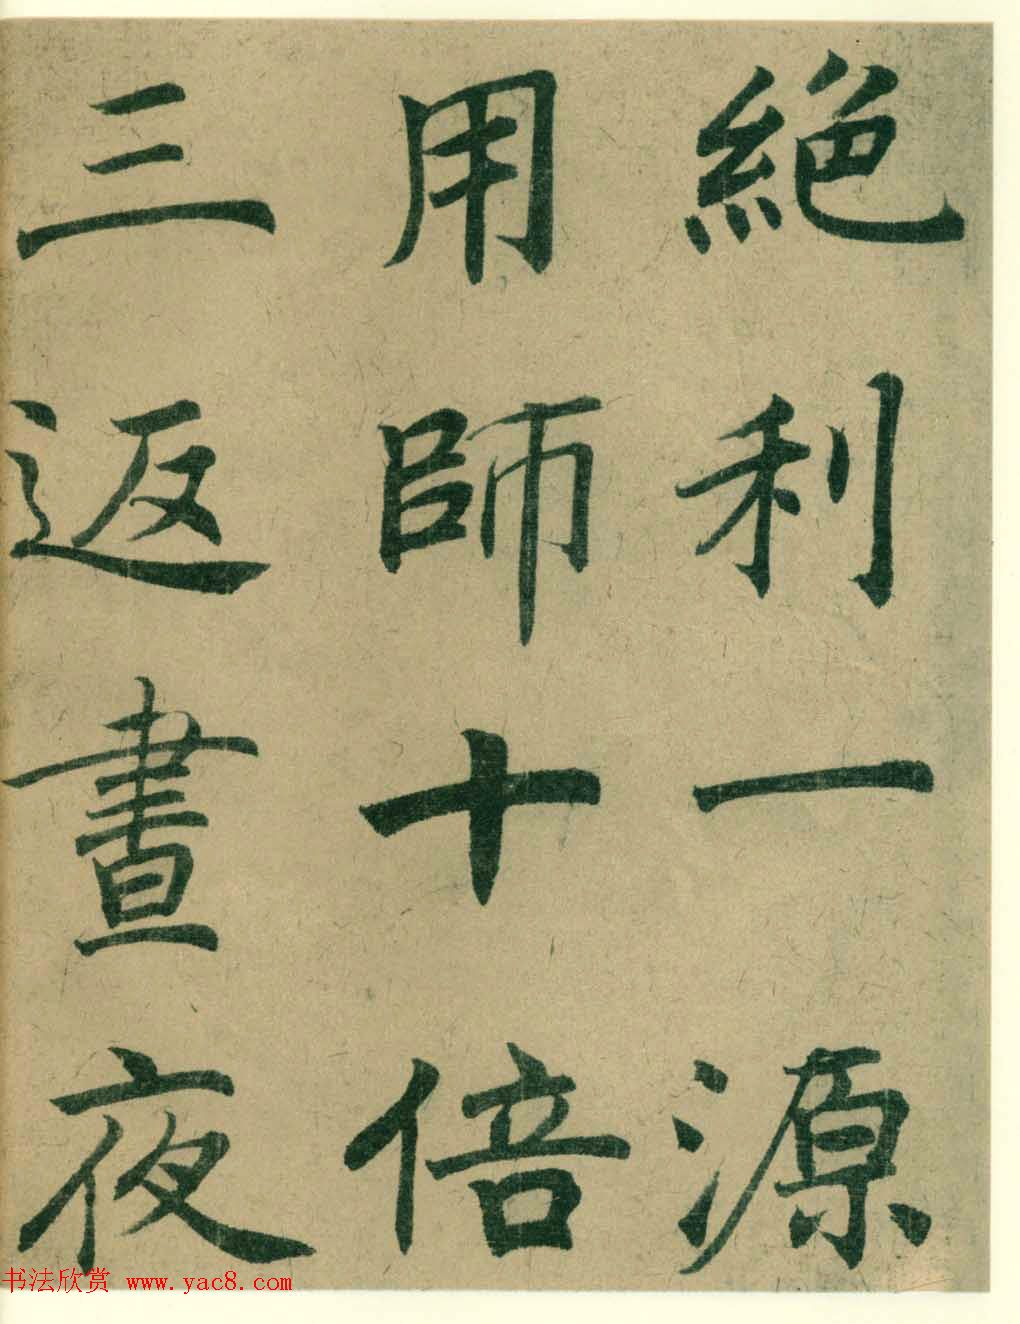 絕利一源
用師十倍
三返晝夜
书法欣赏 www.yac8.com